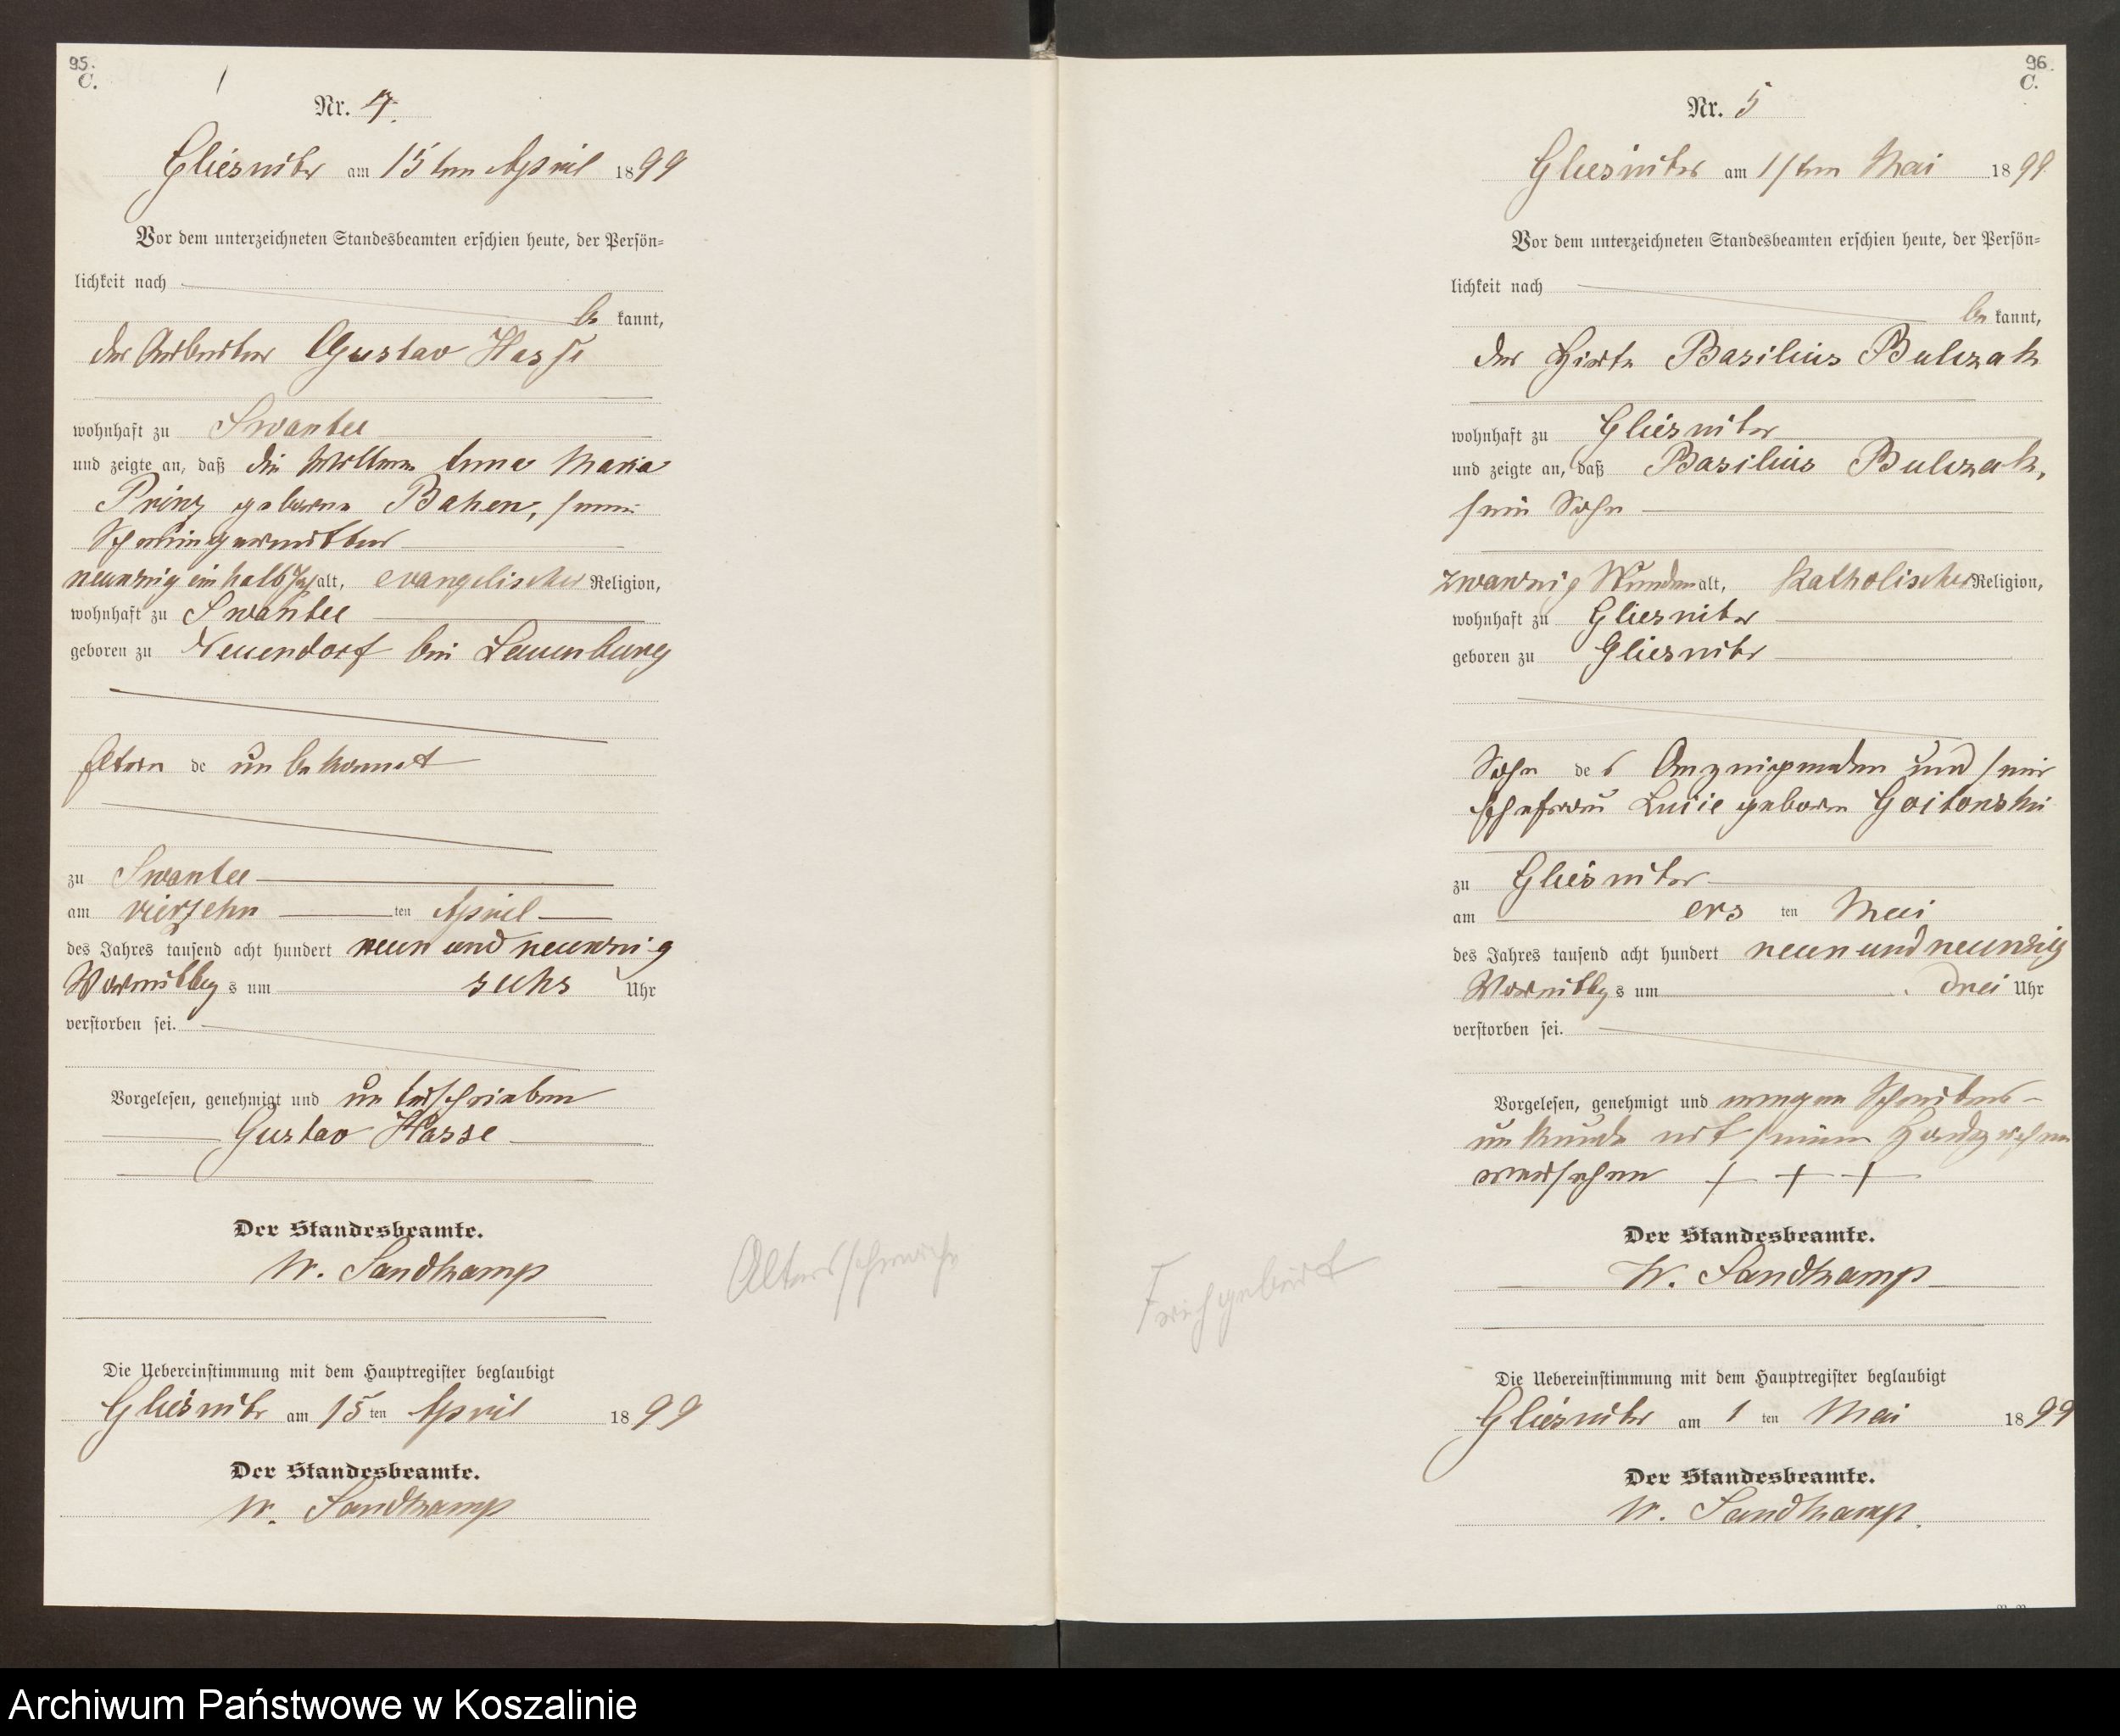 95.
C.
Nr. 4.
Gliesnitz am 15ten April 1899
Vor dem unterzeichneten Standesbeamten erschien heute, der Persön=
lichkeit nach
be kannt,
der Arbeiter Gustav Hasse
wohnhaft zu Swantee
und zeigte an, daß die Wittwe Anna Maria
Prinz geborene Bahen, seine
Schwiegermutter
neunzig ein halb Jahr alt, evangelischer Religion,
wohnhaft zu Swantee
geboren zu Neuendorf bei Lauenburg
Eltern de unbekannt
zu Swantee
am vierzehn ten April
des Jahres tausend acht hundert neun und neunzig
Vormittags um sechs Uhr
verstorben sei.
Vorgelesen, genehmigt und unterschrieben
Gustav Hasse
Der Standesbeamte.
W. Sandkamp
Altersschwäche
Die Uebereinstimmung mit dem Hauptregister beglaubigt
Gliesnitz am 15 ten April 1899
Der Standesbeamte.
W. Sandkamp
96.
C.
Nr. 5
Gliesnitz am 1sten Mai 1899
Vor dem unterzeichneten Standesbeamten erschien heute, der Persön=
lichkeit nach
be kannt,
der Hirte Basilius Bulczak
wohnhaft zu Gliesnitz
und zeigte an, daß Basilius Bulczak,
sein Sohn
zwanzig Stunden alt, katholischer Religion,
wohnhaft zu Gliesnitz
geboren zu Gliesnitz
Sohn des Anzeigenden und seiner
Ehefrau Lucie geborne
zu Gliesnitz
am ers ten Mai
des Jahres tausend acht hundert neun und neunzig
Vormittags um drei Uhr
verstorben sei.
Vorgelesen, genehmigt und wegen Schreibens-
unkunde mit seinem Handzeichen
versehen + + +
Der Standesbeamte.
W. Sandkamp
Frühgeburt
Die Uebereinstimmung mit dem Hauptregister beglaubigt
Gliesnitz am 1 ten Mai 1899
Der Standesbeamte.
W. Sandkamp.
Archiwum Państwowe w Koszalinie